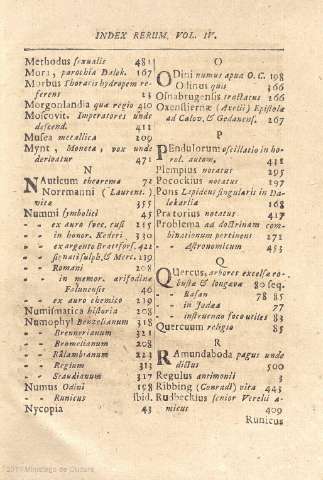 INDEX RERUM, VOL. IV.
Methodus sexualis 481
Mora, parochia Dalek. 167
Morbus thoracis hydropem re-
ferens 23
Morgonlandia quæ regio 410
Moscovit. Imperatores unde
descend. 411
Musea metallica 209
Mynt, Moneta, vox unde
derivatur 471
N
Nauticum rhearema 72
Norrmanni (Laurent.)
vita 355
Nummi symbolici 45
- - ex auro svec. cusi 215
- - in honor. Kederi 330
- - ex argento Brattfors. 421
- - signati sulph. & Merc. 219
- - Romani 208
- - in memor. arifodinæ
Falunensis 46
- - ex auro chemico 219
Numismatica historia 208
Numophyl. Benzelianum 318
- - Brennerianum 321
- - Bromelianum 208
- - Rålambianum 223
- - Regium 313
- - Standianum 317
Numus Odini 198
- - Runicus ibid.
Nycopia 43
O
Odini numus apud O. C. 198
Olinus quis 366
Osnabrugensis tractatus 266
Oxenstiernæ (Axelii) Epistolæ
ad Calov. & Gedanens. 267
P
Pendulorum oscillatio in ho-
rol. autom, 412
Plempius notatus 295
Pocockius notatus 197
Pons Lapideus singularis in Da-
lekarlia 168
Prætorius notatus 417
Problema ad doctrinam com-
binationum pertinens 271
- - Astronomicum 453
Q
Quercus, arbores excelsæ ro-
bustæ & longævæ 80 seq.
- - Basan 78 85
- - in Judæa 77
- - instruendo foco utiles 83
Quercuum religio 85
R
Ramundaboda pagus unde
dictus 500
Regulus antimonii 3
Ribbing (Conradi) vita 443
Rudbeckius senior Verelii a-
micus 409
Runicus
Ministerio de Cultura